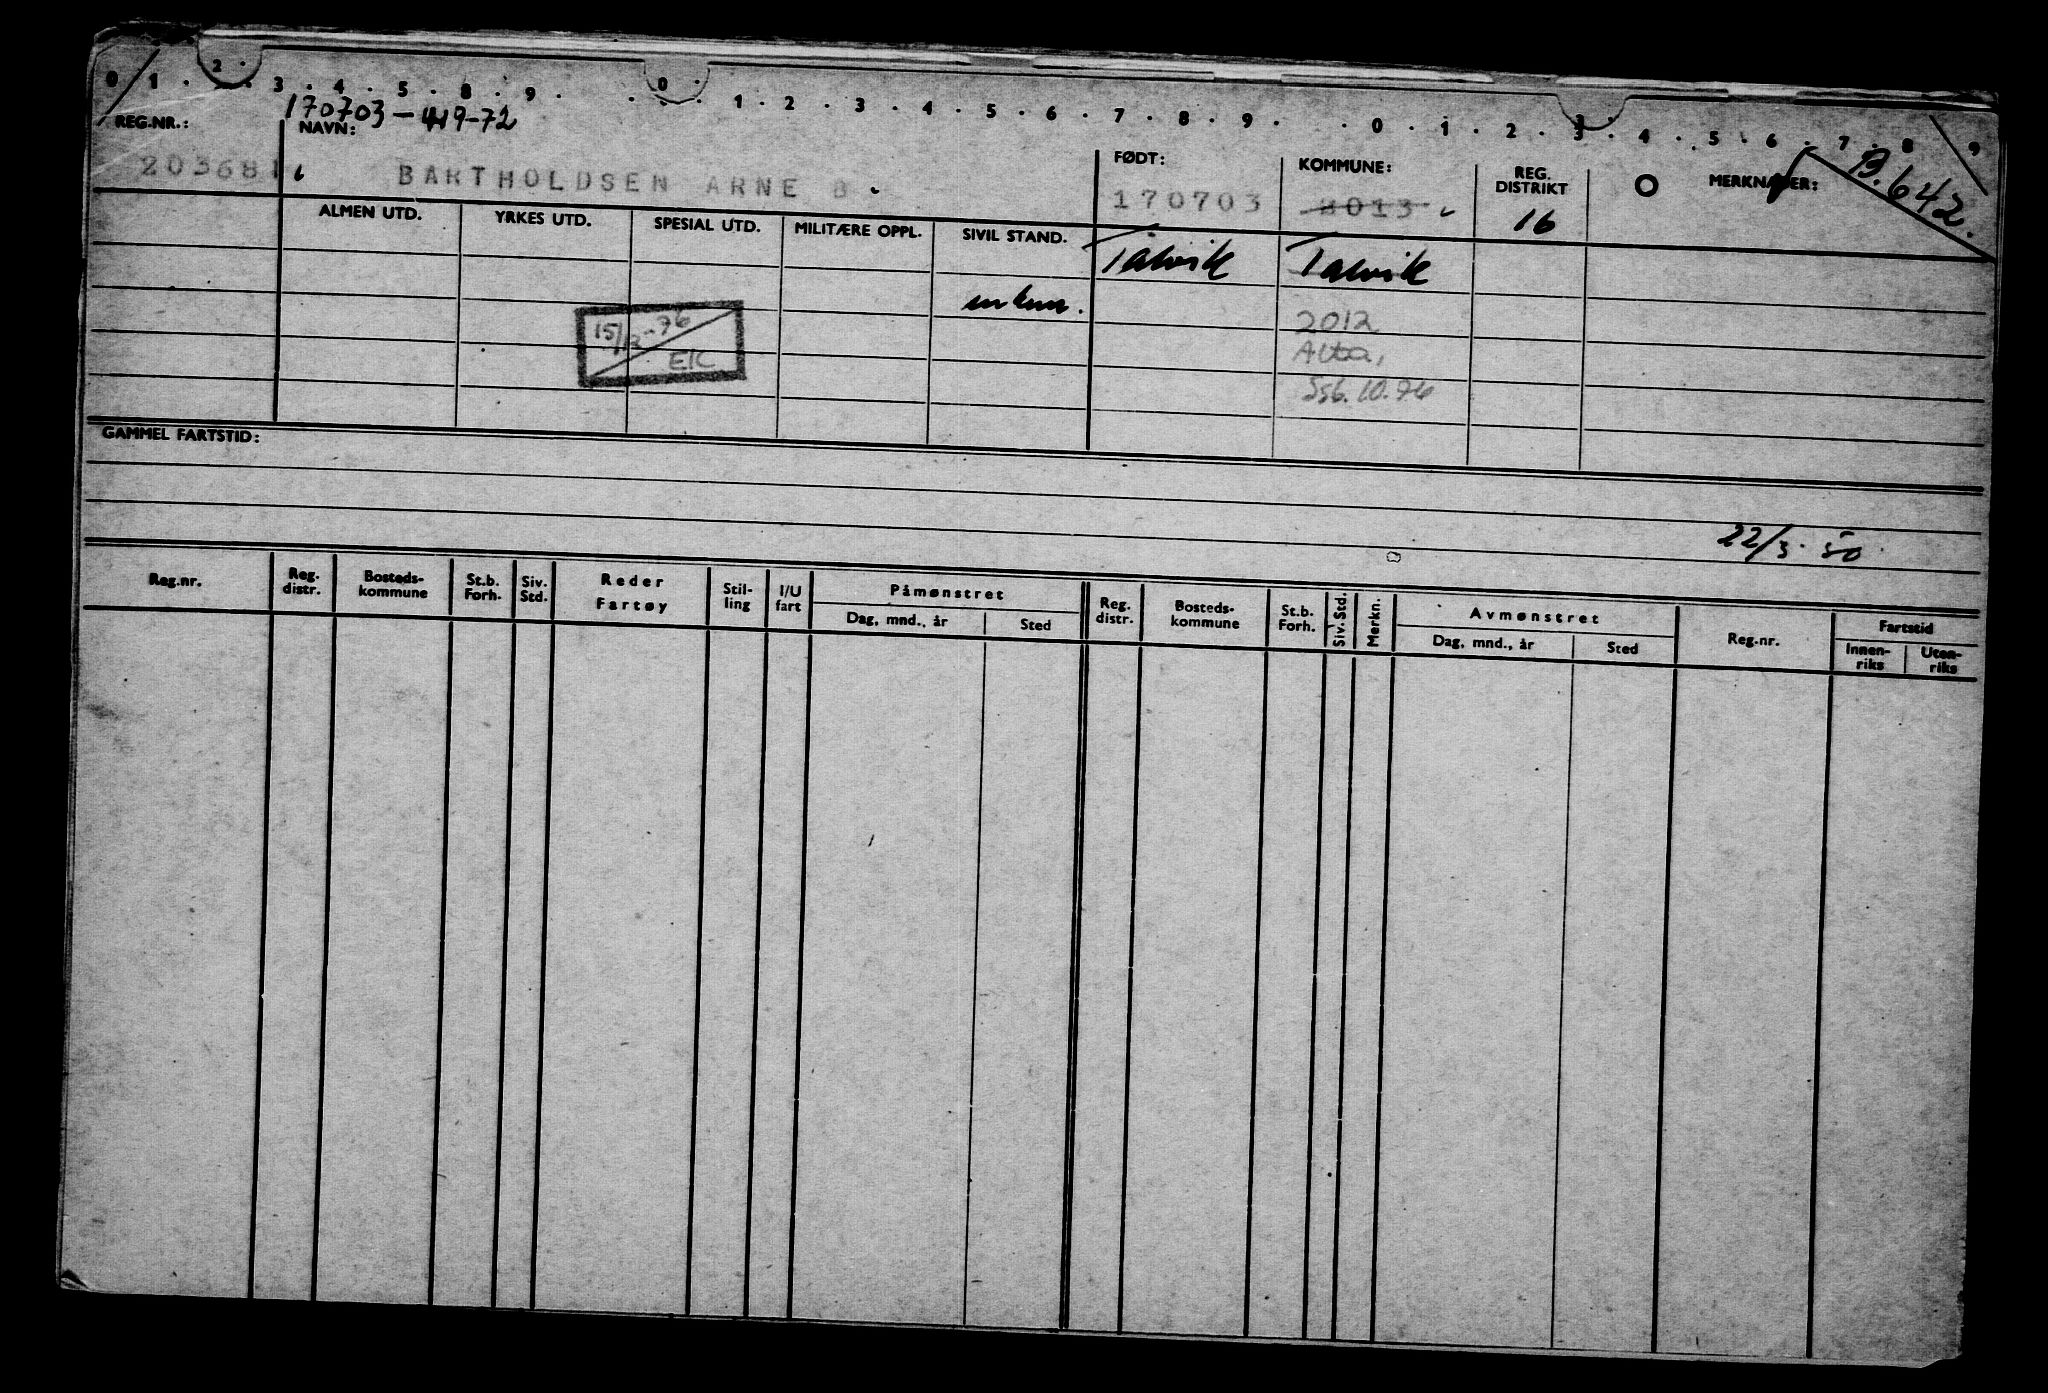 0 1 . 2 . . 3 . 4 . 5 . 8 . 9 . . 0 . 1 . 2 . 3 . 4 . 5 . 6 . 7 . 8 . 9 . . 0 . 1 . 2 . 3 . 4 . 5 . 6 . 7 . 8 9
170703-419-72
REG.NR.: NAVN: FØDT: KOMMUNE: REG. DISTRIKT O MERKNADER: B.642.
203681 BARTHOLDSEN ARNE B 170703 2013 16
ALMEN UTD. YRKES UTD. SPESIAL UTD. MILITÆRE OPPL. SIVIL STAND. Talvik Talvik
15/12-76 2012
EK Alta,
Ssb. 10.76
GAMMEL FARTSTID:
22/3. 50
Reg.nr. Reg. distr. Bosteds-kommune St.b. Forh. Siv. Std. Reder Fartøy Stil-ling I/U fart Påmønstret Reg. distr. Bosteds-kommune St.b. Forh. Siv. Std. Merkn. Avmønstret Reg.nr. Fartstid
Dag, mnd., år Sted Dag, mnd., år Sted Innen-riks Uten-riks